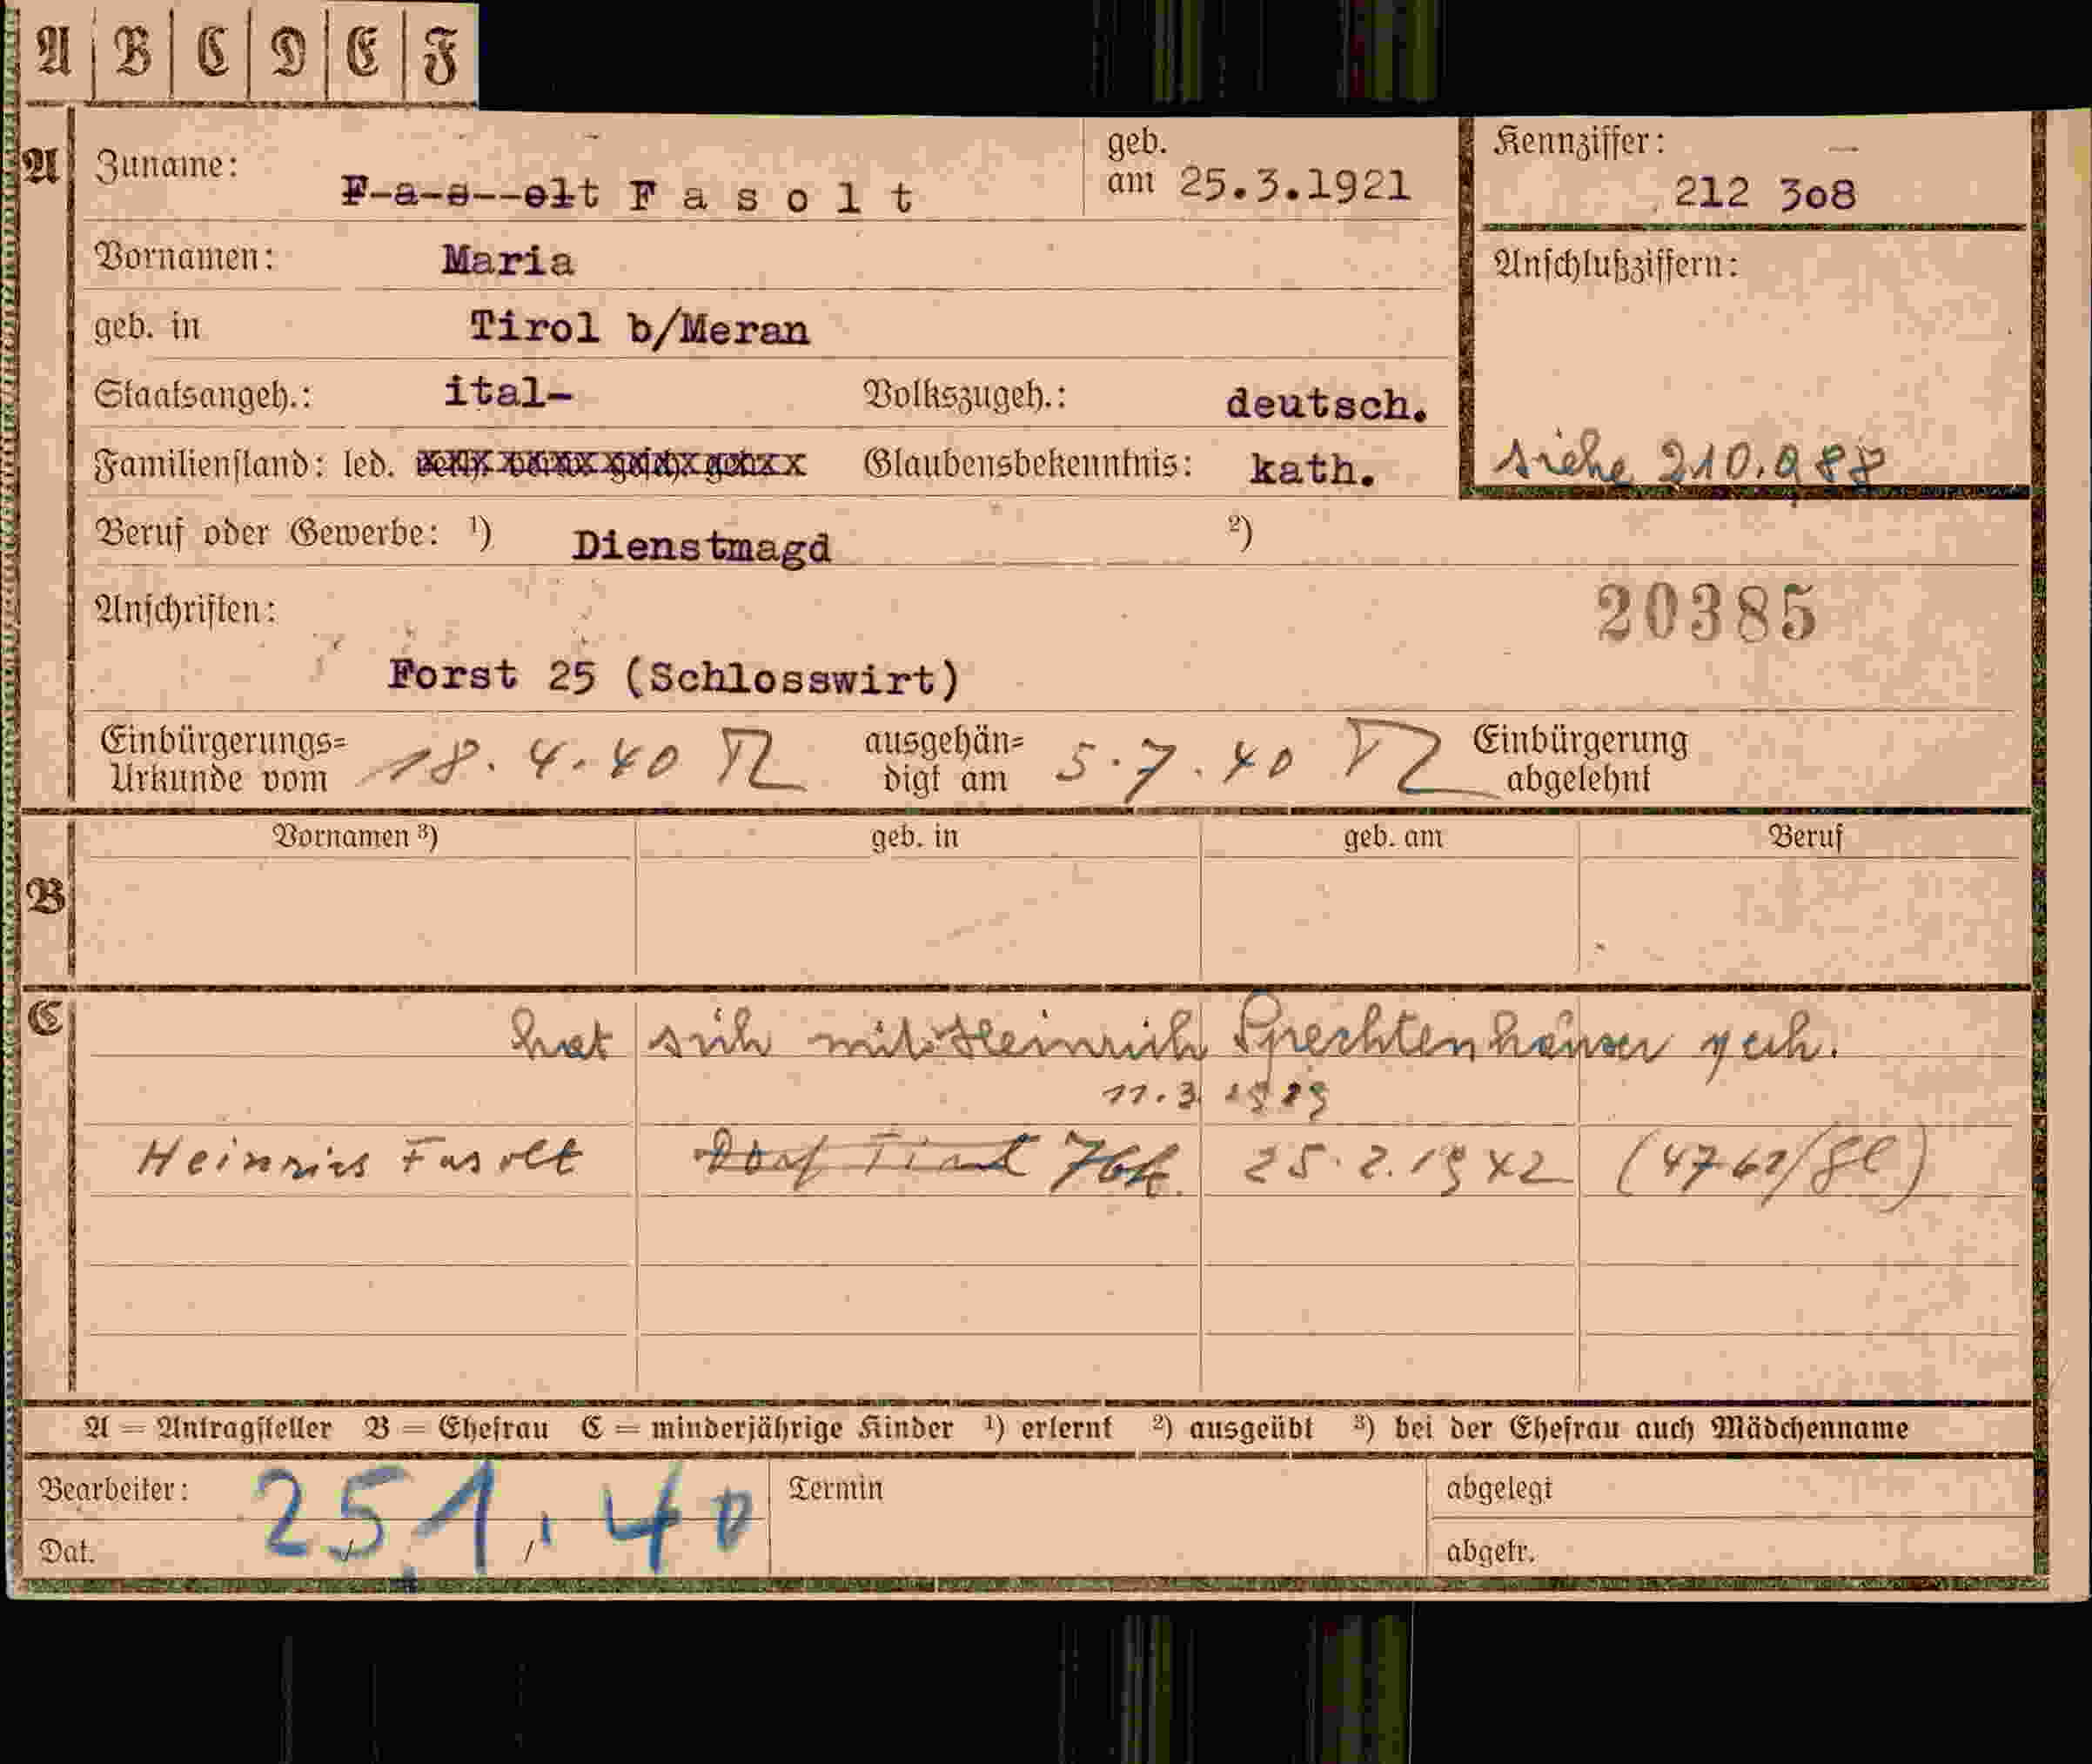 A B C D E F
A Zuname: F-a-s--olt F a s o l t geb. am 25.3.1921 Kennziffer: 212 308
Vornamen: Maria Anschlußziffern:
geb. in Tirol b/Meran
Staatsangeh.: ital- Volkszugeh.: deutsch.
Familienstand: led. Glaubensbekenntnis: kath. siehe 210.988
Beruf oder Gewerbe: 1) Dienstmagd 2)
Anschriften: 20385
Forst 25 (Schlosswirt)
Einbürgerungs= ausgehän= Einbürgerung
Urkunde vom 18.4.40 digt am 5.7.40 abgelehnt
Vornamen 3) geb. in geb. am Beruf
B
C hat sich mit Heinrich Spechtenhauser
11.3.
Heinrich Fasolt Dorf Tirol 25.2.1942
A = Antragsteller B = Ehefrau C = minderjährige Kinder 1) erlernt 2) ausgeübt 3) bei der Ehefrau auch Mädchenname
Bearbeiter: Termin abgelegt
Dat. 25.1.40 abgetr.